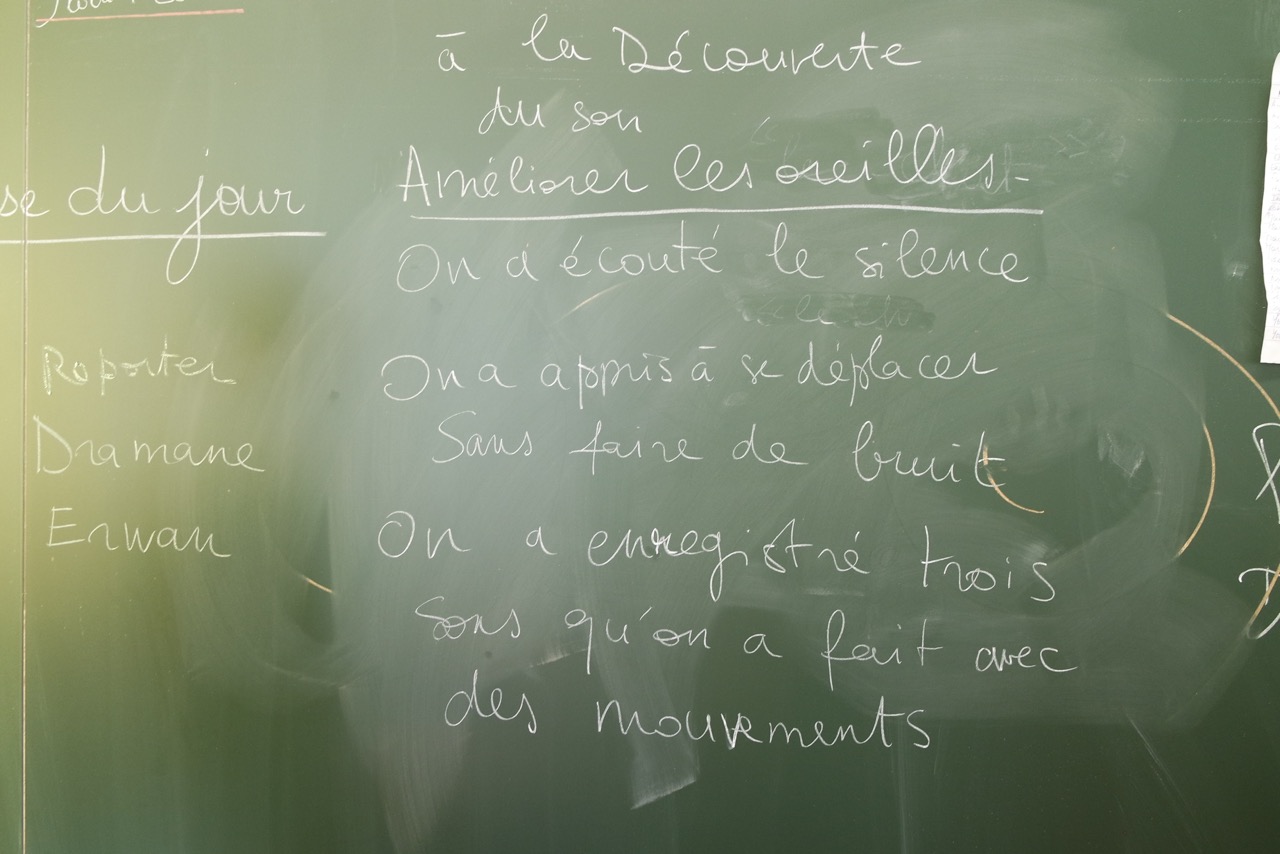 à la Découverte
du son
Améliorer les oreilles
On a écouté le silence
On a appris à se déplacer
Sans faire de bruit
On a enregistré trois
Sons qu'on a fait avec
des mouvements
se du jour
Reporter
Dramane
Erwan